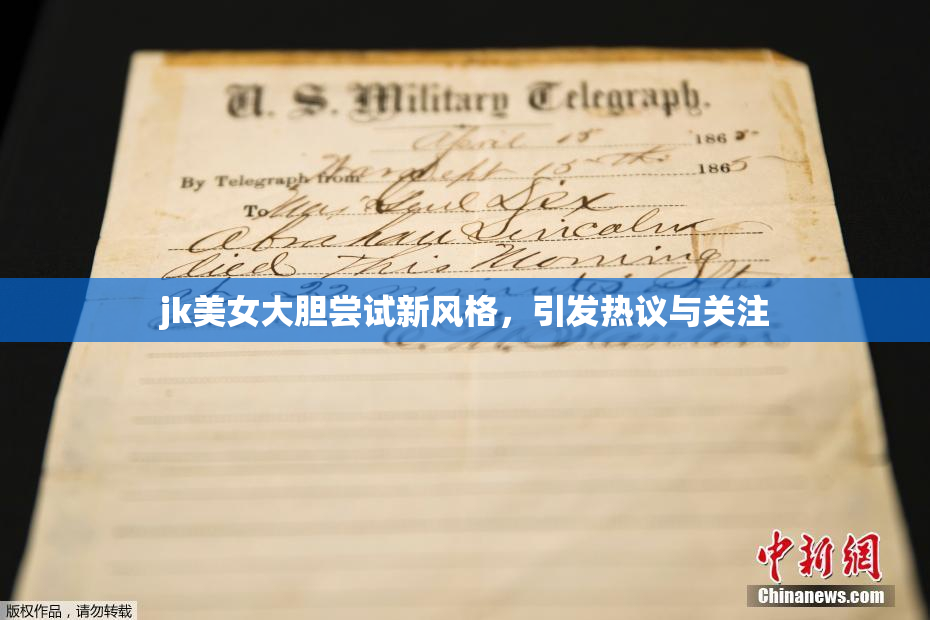 U. S. Military Telegraph.
April 15 1865
By Telegraph from War Dept 15th 1865
To Maj Genl Dix
Abraham Lincoln
died This Morning
at 22 minutes after
jk美女大胆尝试新风格，引发热议与关注
E. M. Stanton
中新网
Chinanews.com
版权作品，请勿转载